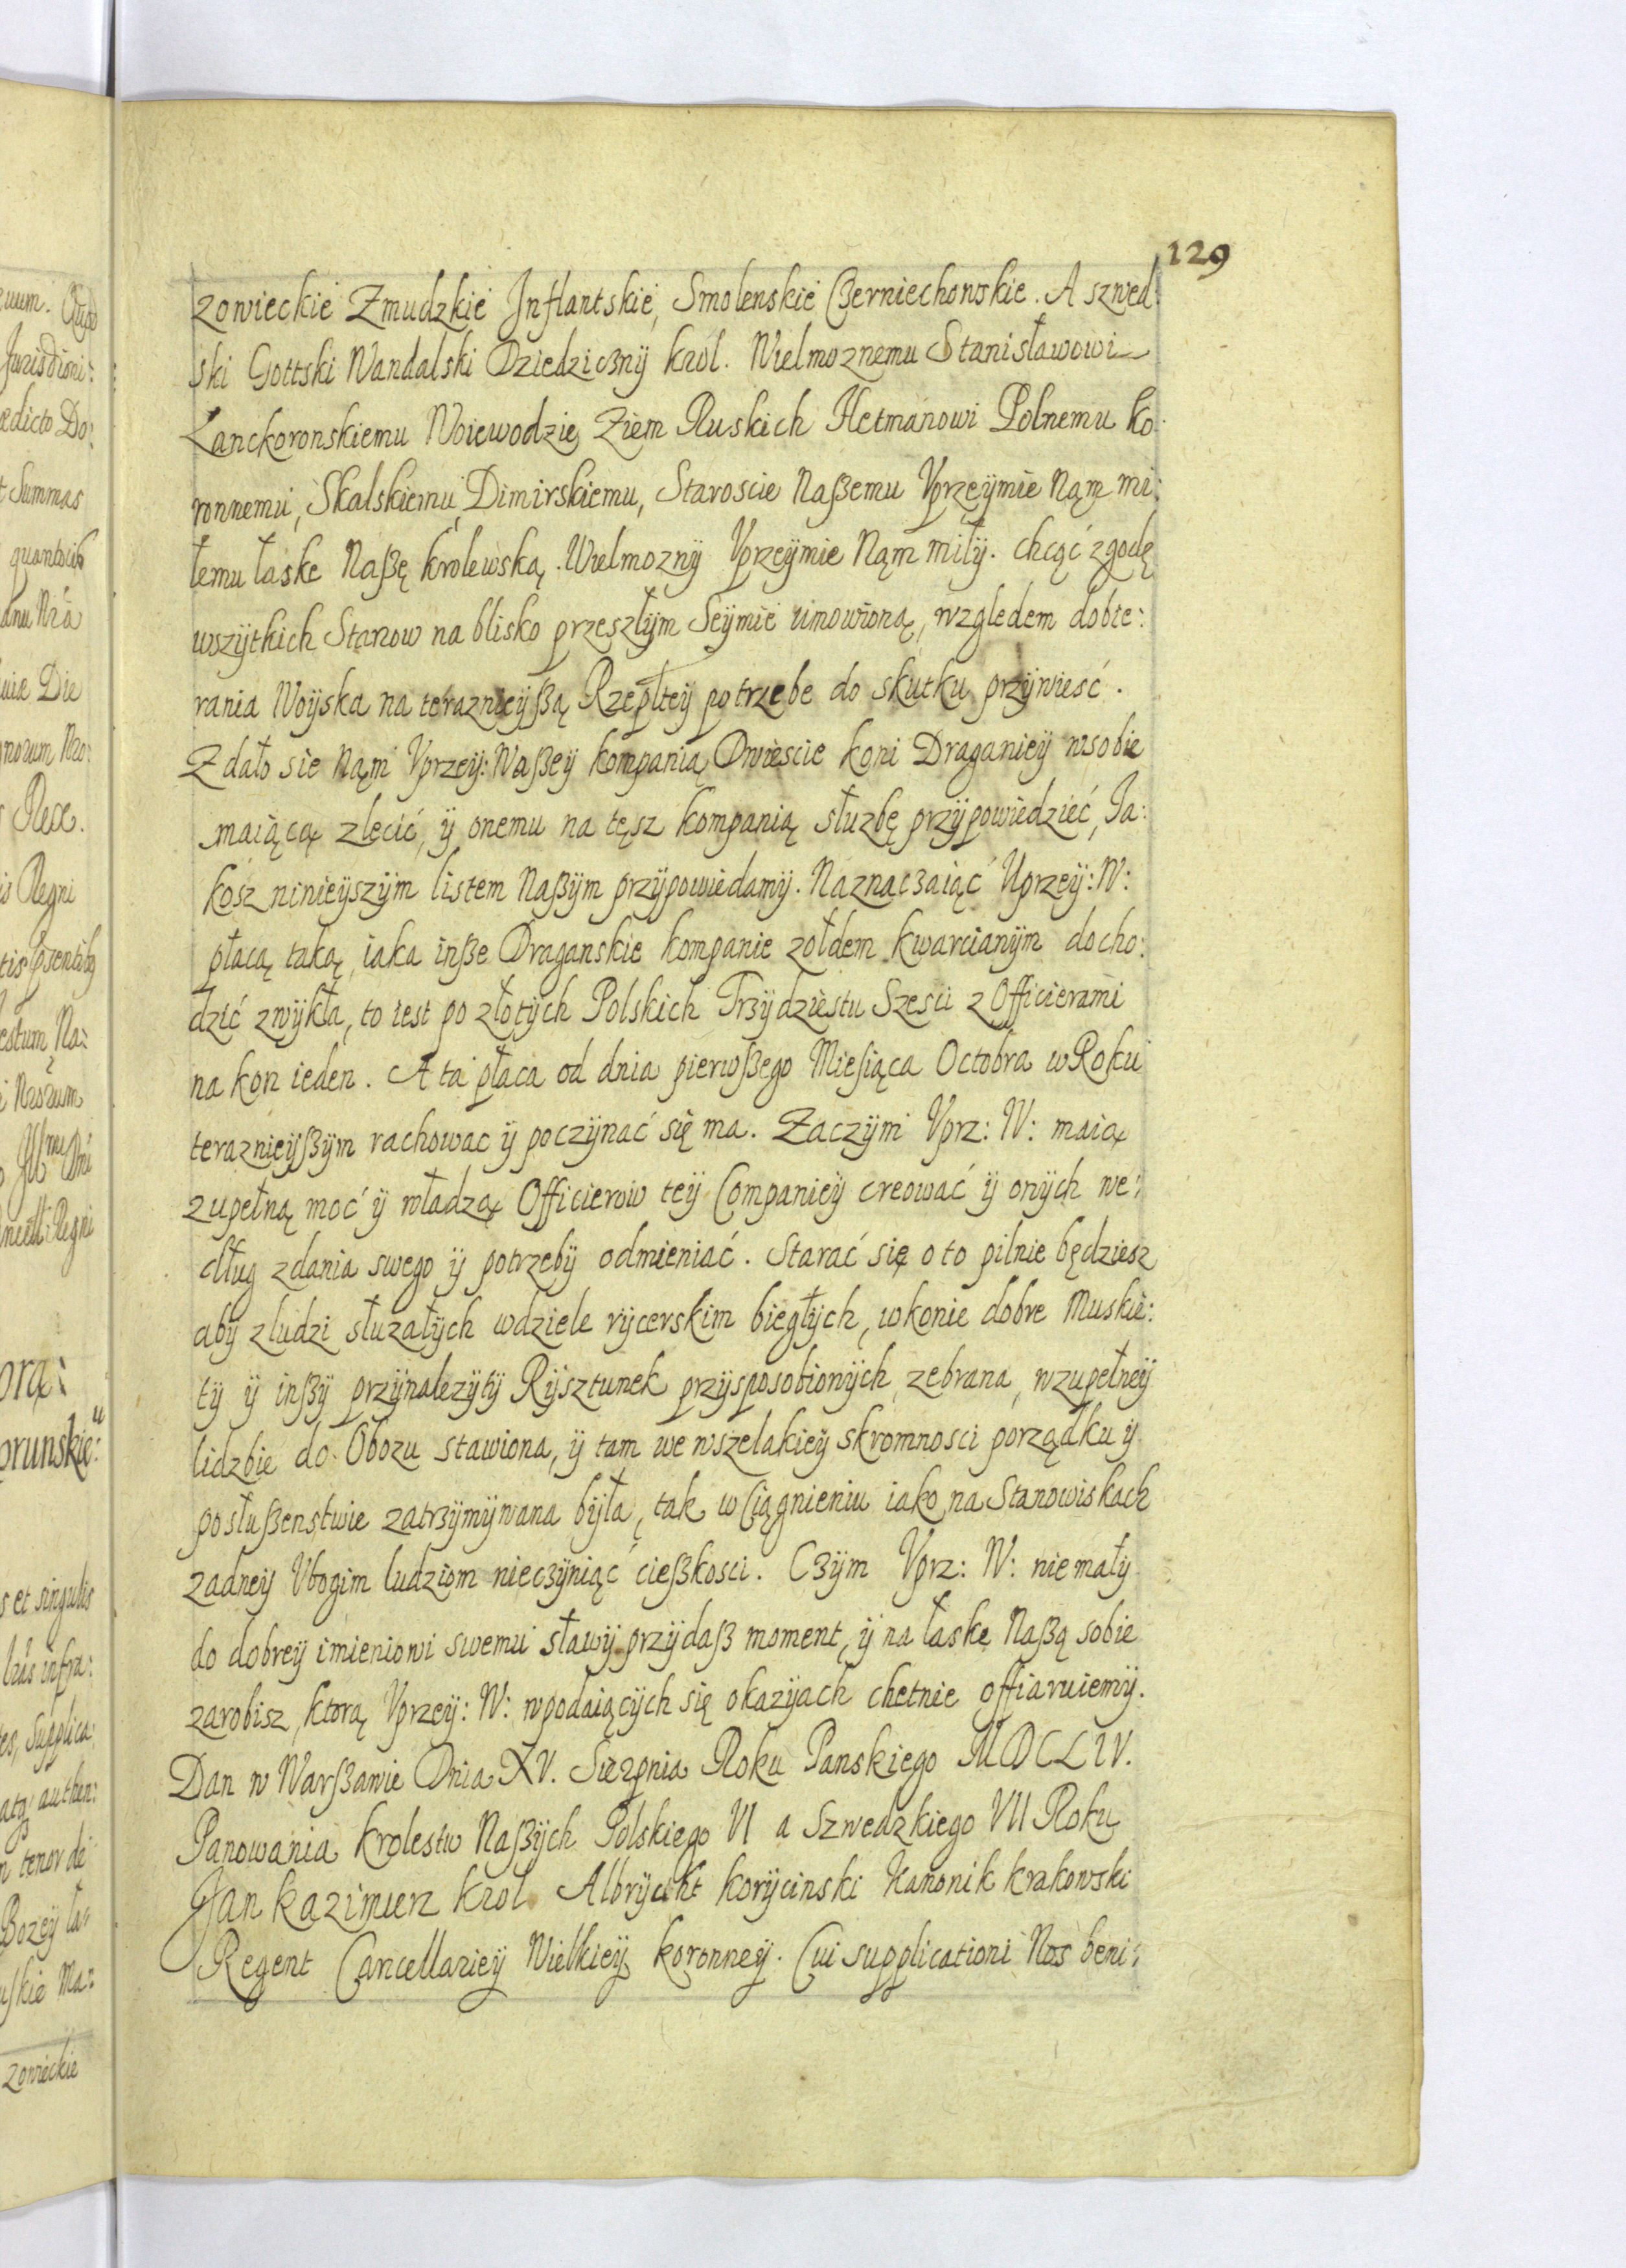 129
zowieckie Zmudzkie Jnflantskie, Smolenskie Czerniechowskie. A szwed:
ski Gottski Wandalski Dziedziczny krol. Wielmoznemu Stanisławowi
Lanckoronskiemu Woiewodzie Ziem Ruskich Hetmanowi Polnemu ko:
ronnemu, Skalskiemu Dimirskiemu, Staroscie Naßemu Vprzeÿmie Nąm mi:
łemu łaske Naßę krolewską. Wielmoznÿ Vprzeÿmie Nąm miłÿ. chcąć zgodę
wszÿtkich Stąnow na blisko przeszłÿm Seÿmie umowioną, względem dobie:
rania Woÿska na teraznieÿßą Rzepłteÿ potrzebe do skutku przÿwieść.
Zdało sie Nąm Vprzeÿ: Waßeÿ kompanią Dwiescie koni Draganieÿ wsobie
maiącą zlecić, ÿ onemu na tęsz kompanią słuzbę przÿpowiedzieć, Ja:
kosz ninieÿszÿm listem Naßÿm przÿpowiedamÿ. Naznaczaiąć Uprzeÿ: W:
płacą taką, iaka inße Draganskie kompanie zołdem kwarcianÿm docho:
dzić zwÿkła, to iest po złotÿch Polskich Trzÿdziestu Szesci z Officierami
na kon ieden. A ta płaca od dnia pierwßego Miesiąca Octobra w Roku
teraznieÿßÿm rachowac ÿ poczÿnać się ma. Zaczÿm Vprz: W: maią
zupełną moć ÿ władzą Officierow teÿ Companieÿ creować ÿ onÿch we:
dług zdania swego ÿ potrzebÿ odmieniać. Starać się o to pilnie będziesz
abÿ zludzi słuzałÿch wdziele rÿcerskim biegłÿch, wkonie dobre Muskie:
tÿ ÿ inßÿ przÿnalezÿtÿ Rÿsztunek przÿsposobionÿch zebrana, wzupełneÿ
lidzbie do Obozu stawiona, ÿ tam we wszelakieÿ skromnosci porządku ÿ
posłußenstwie zatrzÿmÿwana bÿła, tak w Ciągnieniu iako na Stanowiskach
zadneÿ Vbogim ludziom nieczÿniąć cieszkosci. Czÿm Vprz: W: nie małÿ
do dobreÿ imieniowi swemu sławÿ przÿdaß moment, ÿ na łaskę Naßą sobie
zarobisz, ktorą Vprzeÿ: W: wpodaiącÿch się okazÿach chetnie offiaruiemÿ.
Dan w Warßawie Dnia XV. Sierpnia Roku Panskiego MDCLIV.
Panowania krolestw Naßÿch Polskiego VI a Szwedzkiego VII Roku
Jan Kazimierz Krol Albrÿcht korÿcinski Kanonik krakowski
Regent Cancellarieÿ Wielkieÿ koronneÿ. Cui supplicationi Nos beni: